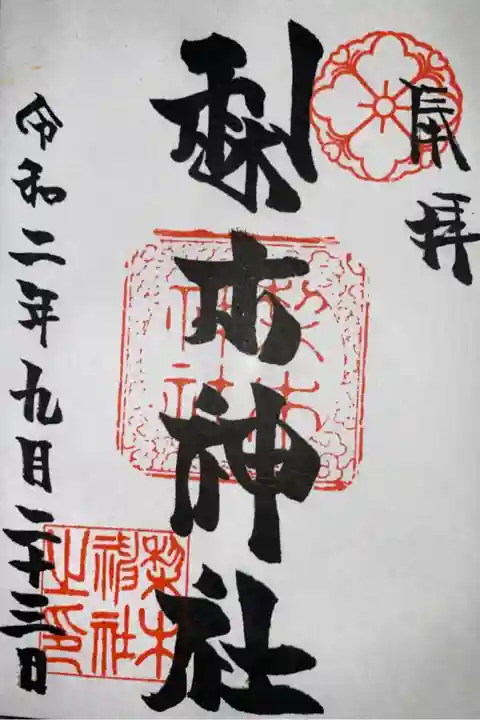 奉拝
梨木神社
梨木神社
令和二年九月二十三日
梨木
神社
之印